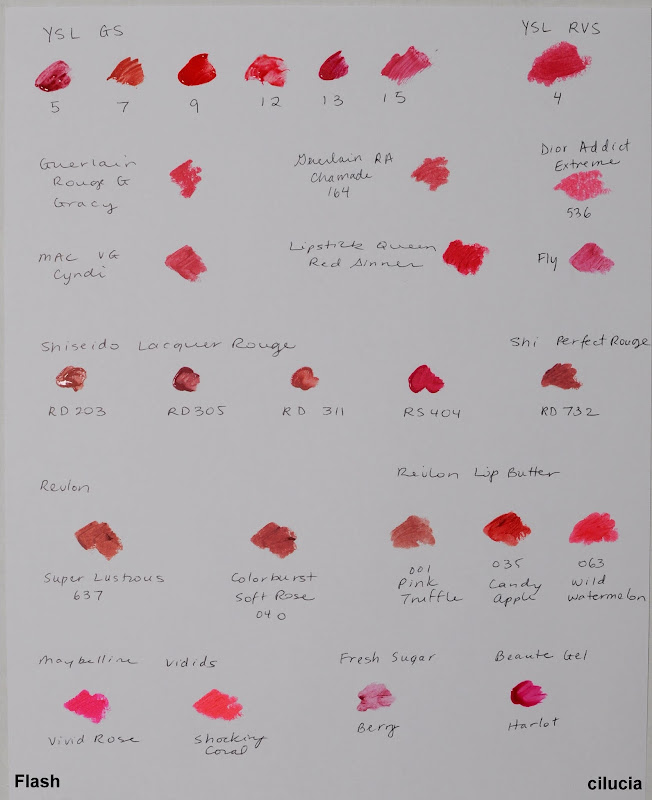 YSL GS
YSL RVS
5 7 9 12 13 15
4
Guerlain
Rouge G
Gracy
Guerlain RA
Chamade
164
Dior Addict
Extreme
536
MAC VG
Cyndi
Lipstick Queen
Red Sinner
Fly
Shiseido Lacquer Rouge
Shi Perfect Rouge
RD 203
RD 305
RD 311
RS 404
RD 732
Revlon
Revlon Lip Butter
Super Lustrous
637
Colorburst
Soft Rose
040
001
Pink
Truffle
035
Candy
Apple
063
Wild
Watermelon
Maybelline Vidids
Fresh Sugar
Beaute Gel
Vivid Rose
Shocking
Coral
Berry
Harlot
Flash
cilucia